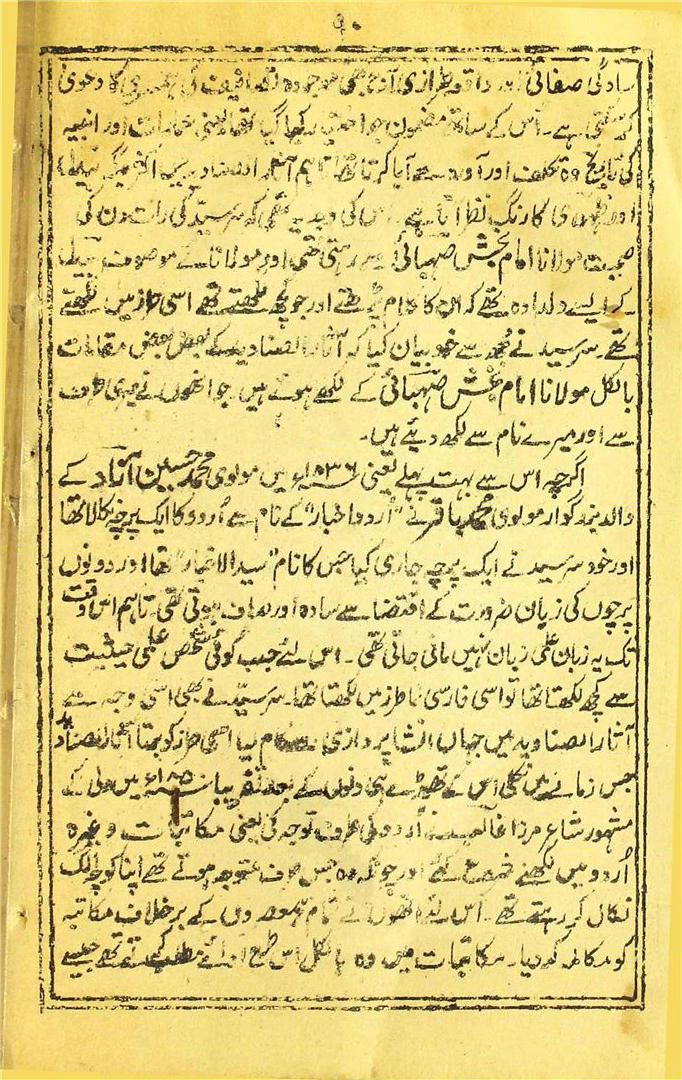 ۹۰
سادگی صفائی اور واقعہ طرازی آج بھی موجودہ تصانیف کی ہمسری کا دعویٰ
کر سکتی ہے۔ اس کے ساتھ مضمون جو اختیار کیا گیا تھا یعنی عمارات اور ابنیہ
کی تاریخ وہ تکلف اور آورد سے آیا کرتا تھا تاہم آثار الصنادید میں اکثر جگہ بیدل
اور ظہوری کا رنگ نظر آتا ہے۔ اس کی وجہ یہ تھی کہ سرسید کی رات دن کی
صحبت مولانا امام بخش صہبائی سے رہتی تھی اور مولانائے موصوف بیدل
کے ایسے دلدادہ تھے کہ ان کا کلام پڑھتے اور جو کچھ لکھتے تھے اسی طرز میں لکھتے
تھے۔ سرسید نے مجھ سے خود بیان کیا کہ آثار الصنادید کے بعض بعض مقامات
بالکل مولانا امام بخش صہبائی کے لکھے ہوئے ہیں۔ جو انھوں نے میری طرف
سے اور میرے نام سے لکھ دیئے ہیں۔
اگرچہ اس سے بہت پہلے یعنی ۱۸۳۶ء میں مولوی محمد حسین آزاد کے
والد بزرگوار مولوی محمد باقر نے "اردو اخبار" کے نام سے اُردو کا ایک پرچہ نکالا تھا
اور خود سرسید نے ایک پرچہ جاری کیا جس کا نام "سید الاخبار" تھا اور دونوں
پرچوں کی زبان ضرورت کے اقتضا سے سادہ اور صاف ہوتی تھی۔ تاہم اس وقت
تک یہ زبان علمی زبان نہیں مانی جاتی تھی۔ اس لئے جب کوئی شخص علمی حیثیت
سے کچھ لکھتا تھا تو اسی فارسی نما طرز میں لکھتا تھا۔ سرسید نے بھی اسی وجہ سے
آثار الصنادید میں جہاں انشا پردازی سے کام لیا اسی طرز کو برتا آثار الصنادید
جس زمانے میں نکلی اس کے تھوڑے ہی دنوں کے بعد تقریباً ۱۸۵۰ء میں دلی کے
مشہور شاعر مرزا غالب نے اردو کی طرف توجہ کی یعنی مکاتبات وغیرہ
اُردو میں لکھنے شروع کئے اور چونکہ وہ جس طرف متوجہ ہوتے تھے اپنا کوچہ الگ
نکال کر رہتے تھے۔ اس لئے انھوں نے تمام ہمعصروں کے برخلاف مکاتبہ
کو مکالمہ کر دیا۔ مکاتبات میں وہ بالکل اس طرح ادائے مطلب کرتے تھے جیسے